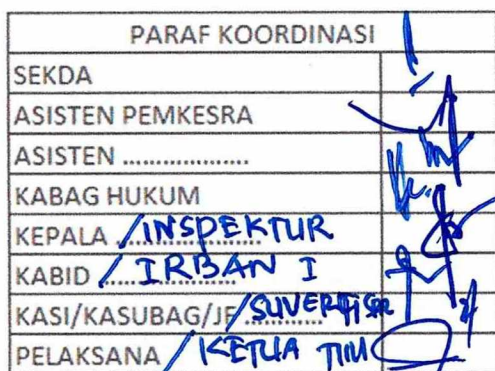 PARAF KOORDINASI
SEKDA
ASISTEN PEMKESRA
ASISTEN ....................
KABAG HUKUM
KEPALA /INSPEKTUR
KABID / IRBAN I
KASI/KASUBAG/JF /SUVERFISOR
PELAKSANA / KETUA TIM